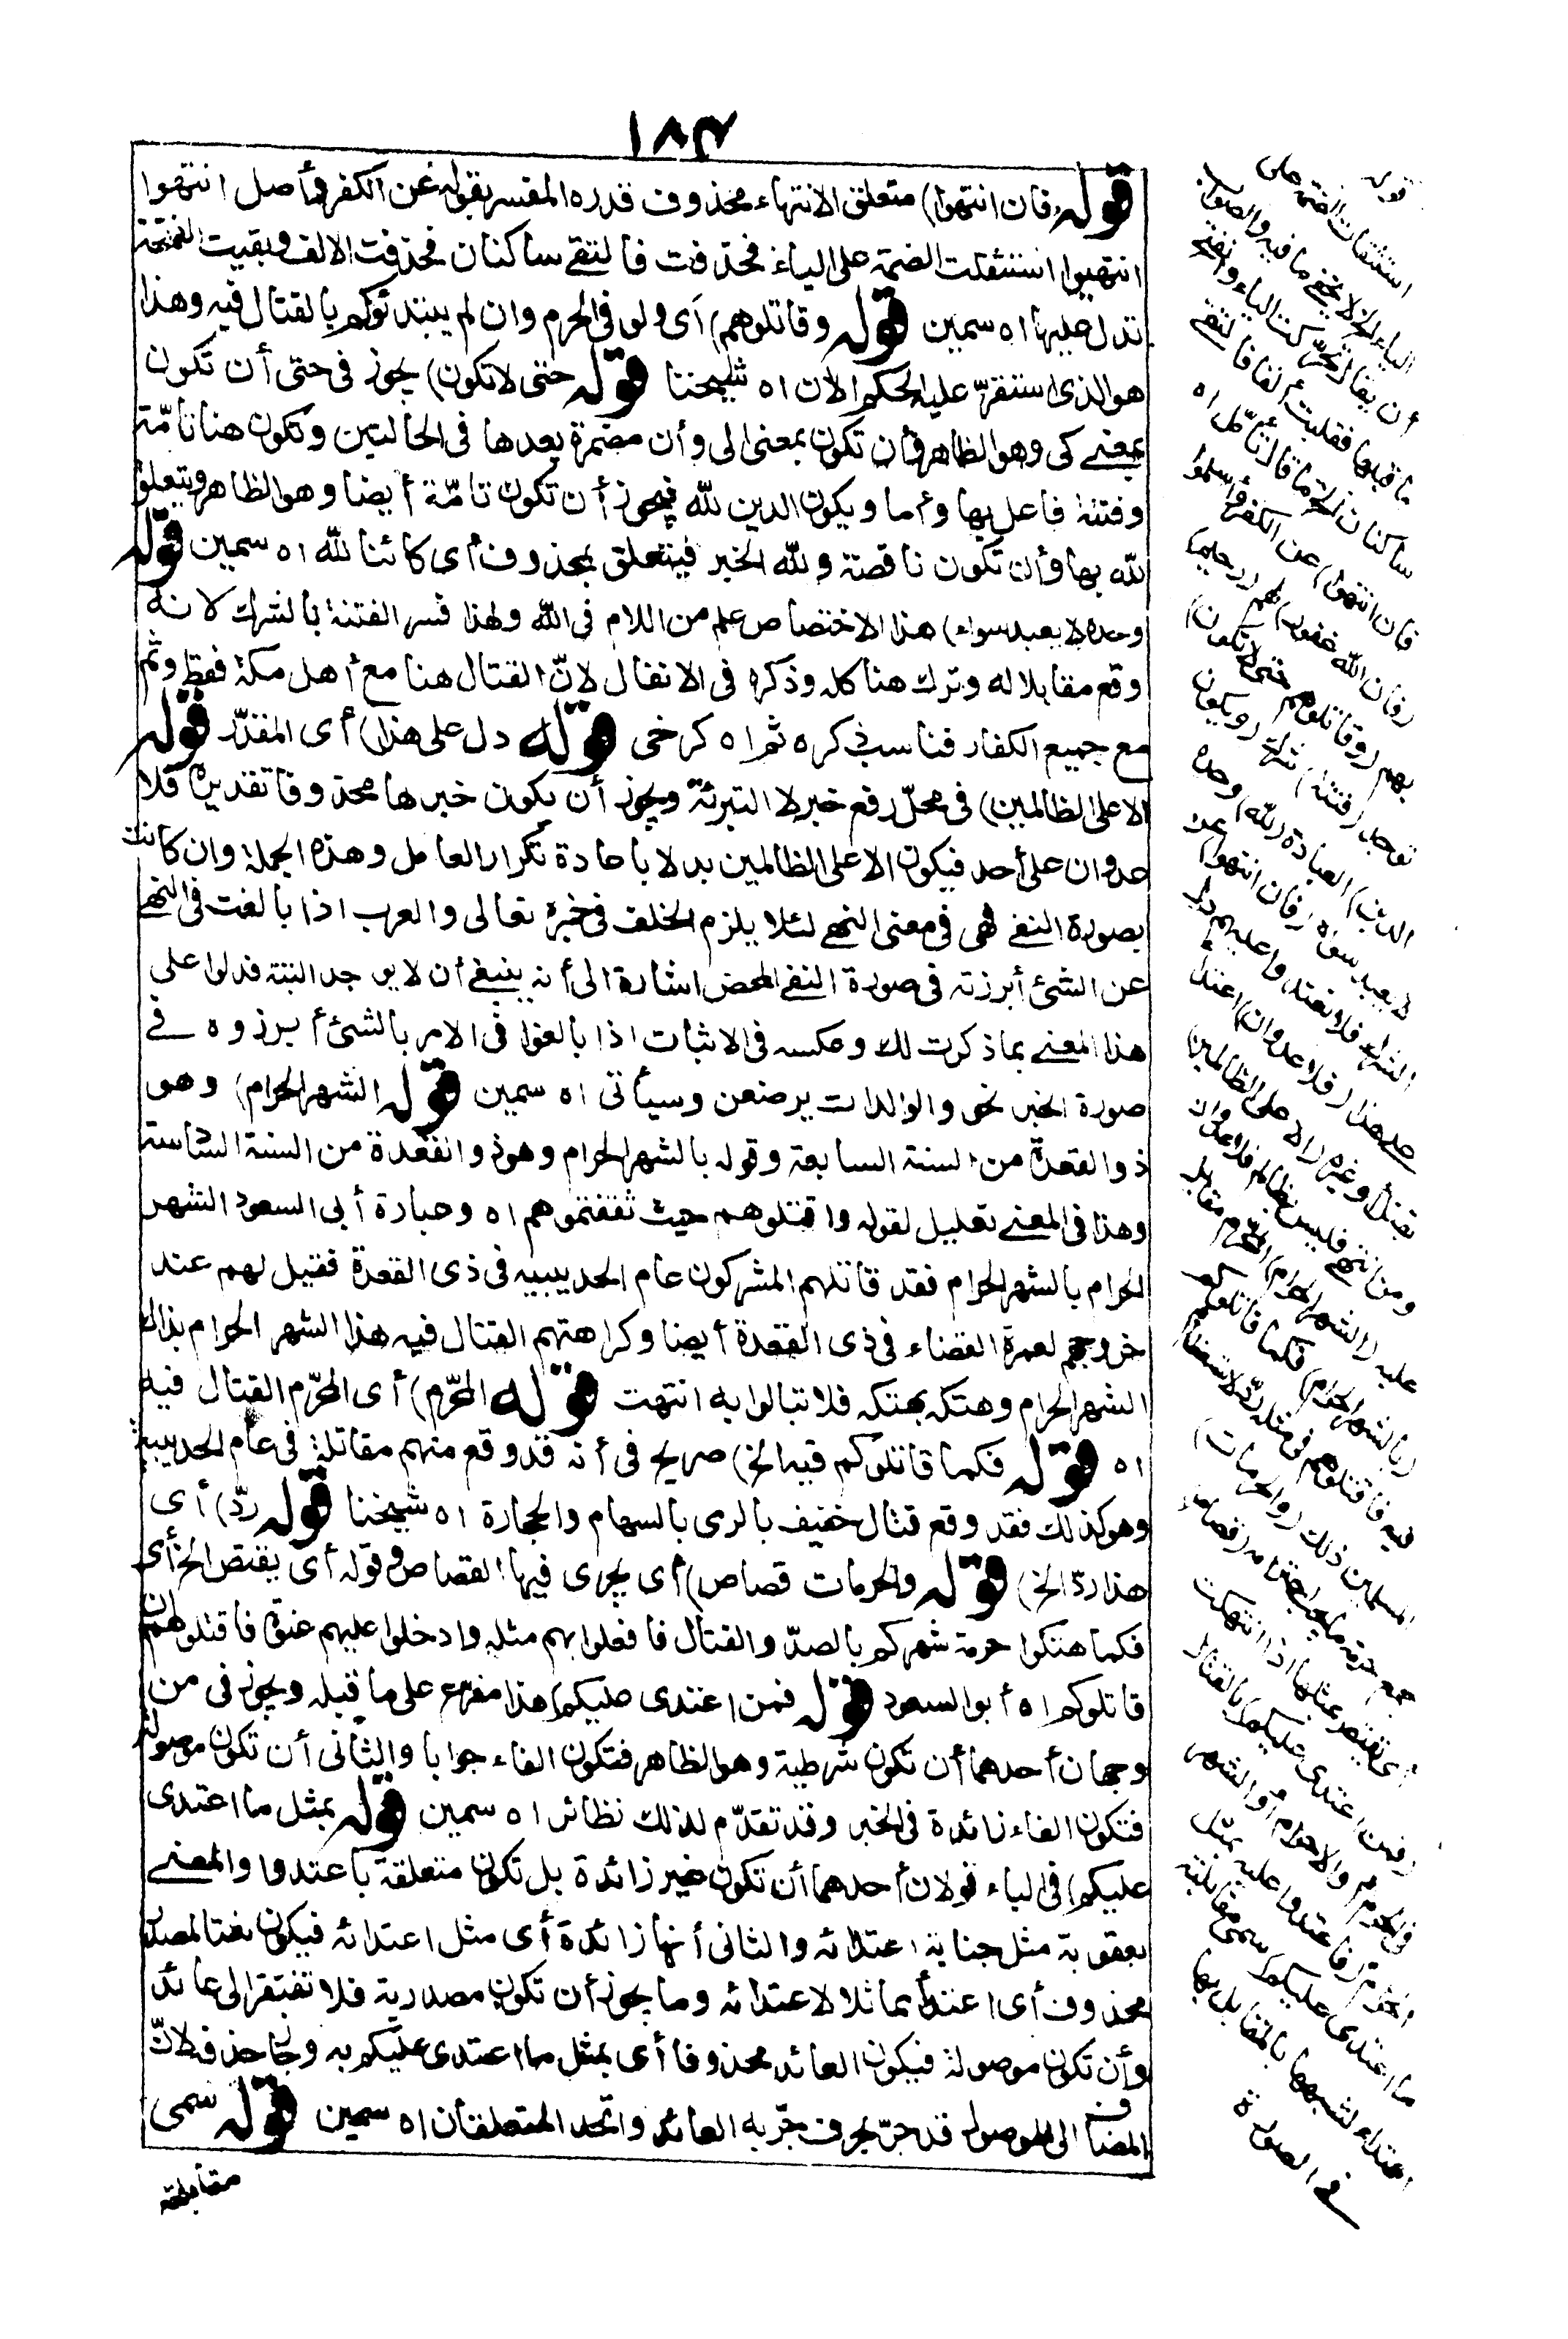 ١٨٣
قوله فان انتهوا) متعلق الانتهاء محذوف قدره المفسر بقوله عن الكفر وأصل انتهوا
انتهيوا استثقلت الضمة على الياء فحذفت فالتقى ساكنان فحذفت الالف وبقيت الفتحة
تدل عليها اه سمين قوله وقاتلوهم) أى ولو فى الحرم وان لم يبتدئوكم بالقتال فيه وهذا
هو الذى استقرّ عليه الحكم الآن اه شيخنا قوله حتى لا تكون) يجوز فى حتى أن تكون
بمعنى كى وهو الظاهر وأن تكون بمعنى الى وأن مضمرة بعدها فى الحالتين وتكون هنا تامّة
وفتنة فاعل بها وأما ويكون الدين لله فيجوز أن تكون تامّة أيضا وهو الظاهر ويتعلق
لله بها وأن تكون ناقصة ولله الخبر فيتعلق بمحذوف أى كائنا لله اه سمين قوله
وحده لا يعبد سواه) هذا الاختصاص علم من اللام فى الله ولهذا فسر الفتنة بالشرك لانه
وقع مقابلا له وترك هنا كله وذكره فى الانفال لانّ القتال هنا مع أهل مكة فقط وثم
مع جميع الكفار فناسب ذكره ثم اه كرخى قوله دل على هذا) أى المقدّر قوله
الا على الظالمين) فى محلّ رفع خبر لا التبرئة ويجوز أن يكون خبرها محذوفا تقديره فلا
عدوان على أحد فيكون الا على الظالمين بدلا باعادة تكرار العامل وهذه الجملة وان كانت
بصورة النفى فهى فى معنى النهى لئلا يلزم الخلف فى خبره تعالى والعرب اذا بالغت فى النهى
عن الشئ أبرزته فى صورة النفى المحض اشارة الى أنه ينبغى أن لا يوجد البتة فدلوا على
هذا المعنى بما ذكرت لك وعكسه فى الاثبات اذا بالغوا فى الامر بالشئ أبرزوه فى
صورة الخبر نحو والوالدات يرضعن وسيأتى اه سمين قوله الشهر الحرام) وهو
ذو القعدة من السنة السابعة وقوله بالشهر الحرام وهو ذو القعدة من السنة السادسة
وهذا فى المعنى تعليل لقوله واقتلوهم حيث ثقفتموهم اه وعبارة أبى السعود الشهر
الحرام بالشهر الحرام فقد قاتلهم المشركون عام الحديبيه فى ذى القعدة فقيل لهم عند
خروجهم لعمرة القضاء فى ذى القعدة أيضا وكراهتهم القتال فيه هذا الشهر الحرام بذاك
الشهر الحرام وهتكه بهتكه فلا تبالوا به انتهت قوله المحرّم) أى المحرّم القتال فيه
اه قوله فكما قاتلوكم فيه الخ) صريح فى أنه قد وقع منهم مقاتلة فى عام الحديبية
وهو كذلك فقد وقع قتال خفيف بالرمى بالسهام والحجارة اه شيخنا قوله ردّ) أى
هذا ردّ الخ) قوله والحرمات قصاص) أى يجرى فيها القصاص وقوله أى يقتص الخ أى
فكما هتكوا حرمة شهركم بالصدّ والقتال فافعلوا بهم مثله وادخلوا عليهم عنوة فاقتلوهم ان
قاتلوكم اه أبو السعود قوله فمن اعتدى عليكم) هذا مفرع على ما قبله ويجوز فى من
وجهان أحدهما أن تكون شرطية وهو الظاهر فتكون الفاء جوابا والثانى أن تكون موصولة
فتكون الفاء زائدة فى الخبر وقد تقدّم لذلك نظائر اه سمين قوله بمثل ما اعتدى
عليكم) فى الباء قولان أحدهما أن تكون غير زائدة بل تكون متعلقة باعتدوا والمعنى
بعقوبة مثل جناية اعتدائه والثانى أنها زائدة أى مثل اعتدائه فيكون نعتا لمصدر
محذوف أى اعتدأ مماثلا لاعتدائه وما يجوز أن تكون مصدرية فلا تفتقر الى عائد
وأن تكون موصولة فيكون العائد محذوفا أى بمثل ما اعتدى عليكم به وجاز حذفه لانّ
المضاف الى الموصول قد جرّ بحرف جرّ به العائد واتحد المتعلقان اه سمين قوله سمى
مقابلته
قوله
استثقلت الضمة على
الياء الخ لا يخفى ما فيه والصواب
أن يقال تحرّكت الياء وانفتح
ما قبلها فقلبت ألفا فالتقى
ساكنان الخ ما قال تأمّل اه
فان انتهوا) عن الكفر وأسلموا
(فان الله غفور) لهم (رحيم)
بهم (وقاتلوهم حتى لا تكون)
توجد (فتنة) شرك (ويكون
الدين) العبادة (لله) وحده
لا يعبد سواه (فان انتهوا) عن
الشرك فلا تعتدوا عليهم دل
على هذا (فلا عدوان) اعتداء
بقتل أو غيره (الا على الظالمين)
ومن انتهى فليس بظالم فلا عدوان
عليه (الشهر الحرام) المحرّم مقابل
(بالشهر الحرام) فكما قاتلوكم
فيه فاقتلوهم فى مثله ردّ لاستعظام
المسلمين ذلك (والحرمات)
جمع حرمة ما يجب احترامه (قصاص)
أى يقتص بمثلها اذا انتهكت
(فمن اعتدى عليكم) بالقتال
فى الحرم والاحرام أو الشهر
الحرام (فاعتدوا عليه بمثل
ما اعتدى عليكم) سمى مقابلته
اعتداء لشبهها بالمقابل بها
فى الصورة